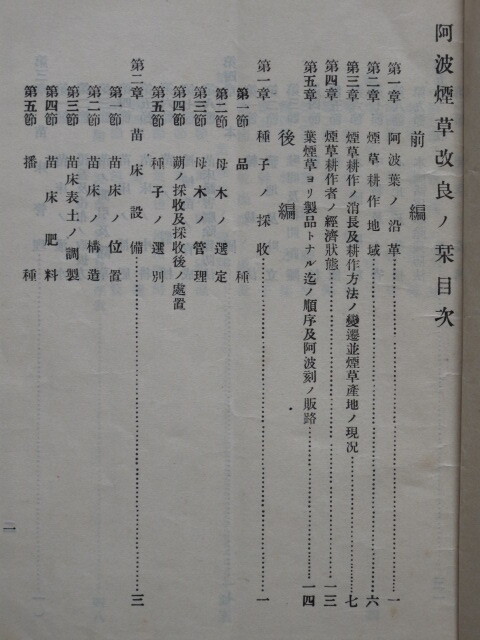 阿波煙草改良ノ栞目次
前編
第一章 阿波葉ノ沿革……一
第二章 煙草耕作地域……六
第三章 煙草耕作ノ消長及耕作方法ノ變遷並煙草產地ノ現況……七
第四章 煙草耕作者ノ經濟狀態……一三
第五章 葉煙草ヨリ製品トナル迄ノ順序及阿波刻ノ販路……一四
後編
第一章 種子ノ採收……一
第一節 品種
第二節 母木ノ選定
第三節 母木ノ管理
第四節 蒴ノ採收及採收後ノ處置
第五節 種子ノ選別
第二章 苗床設備……三
第一節 苗床ノ位置
第二節 苗床ノ構造
第三節 苗床表土ノ調製
第四節 苗床肥料
第五節 播種
一